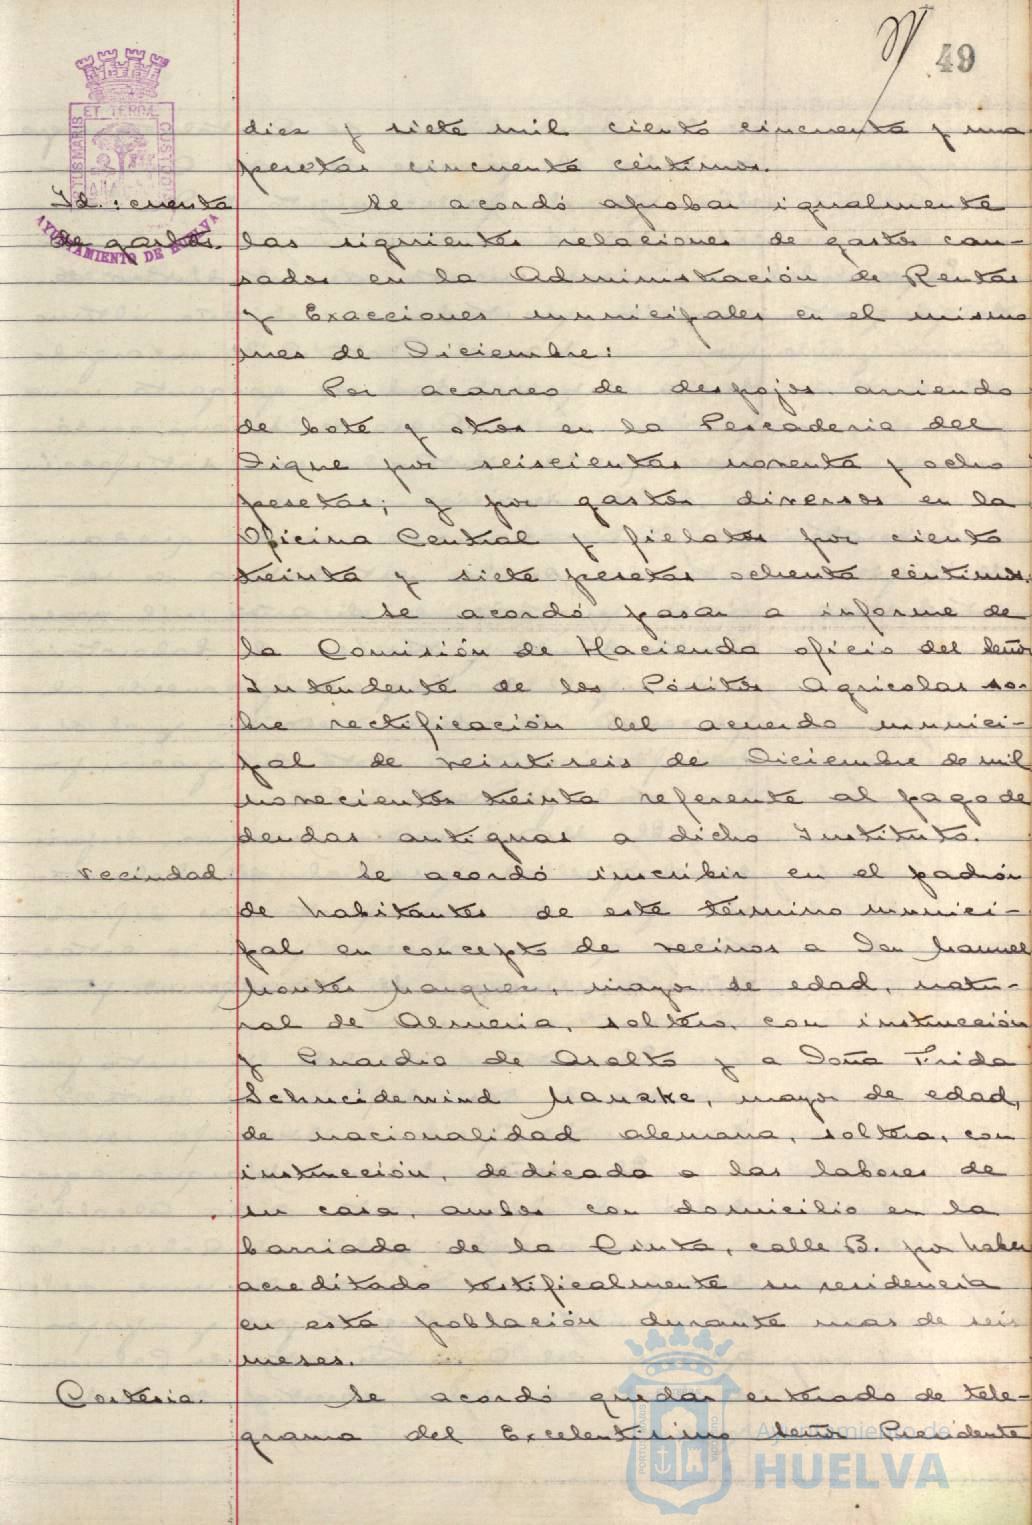 49
diez y siete mil ciento cincuenta y una
pesetas cincuenta céntimos.
Id.: cuenta
de gastos.
Se acordó aprobar igualmente
las siguientes relaciones de gastos cau-
sados en la Administración de Rentas
y Exacciones municipales en el mismo
mes de Diciembre:
Por acarreo de despojos arriendo
de bote y otros en la Pescaderia del
Dique por seiscientas noventa y ocho
pesetas; y por gastos diversos en la
Oficina Central y fielatos por ciento
treinta y siete pesetas ochenta céntimos.
Se acordó pasar a informe de
la Comisión de Hacienda oficio del Señor
Intendente de los Pósitos Agricolas so-
bre rectificación del acuerdo munici-
pal de veintiseis de Diciembre de mil
novecientos treinta referente al pago de
deudas antiguas a dicho Instituto.
vecindad
Se acordó inscribir en el padrón
de habitantes de este término munici-
pal en concepto de vecinos a Don Manuel
Montes Marquez, mayor de edad, natu-
ral de Almeria, soltero, con instrucción
y Guardia de Asalto y a Doña Frida
Schneidewind Manske, mayor de edad,
de nacionalidad alemana, soltera, con
instrucción, dedicada a las labores de
su casa, ambos con domicilio en la
barriada de la Cinta, calle B. por haber
acreditado testificalmente su residencia
en esta población durante mas de seis
meses.
Cortesia.
Se acordó quedar enterado de tele-
grama del Excelentisimo Señor Presidente
ET TERRAE
CUSTODIA
PORTUS MARIS
AYUNTAMIENTO DE HUELVA
Ayuntamiento de
HUELVA